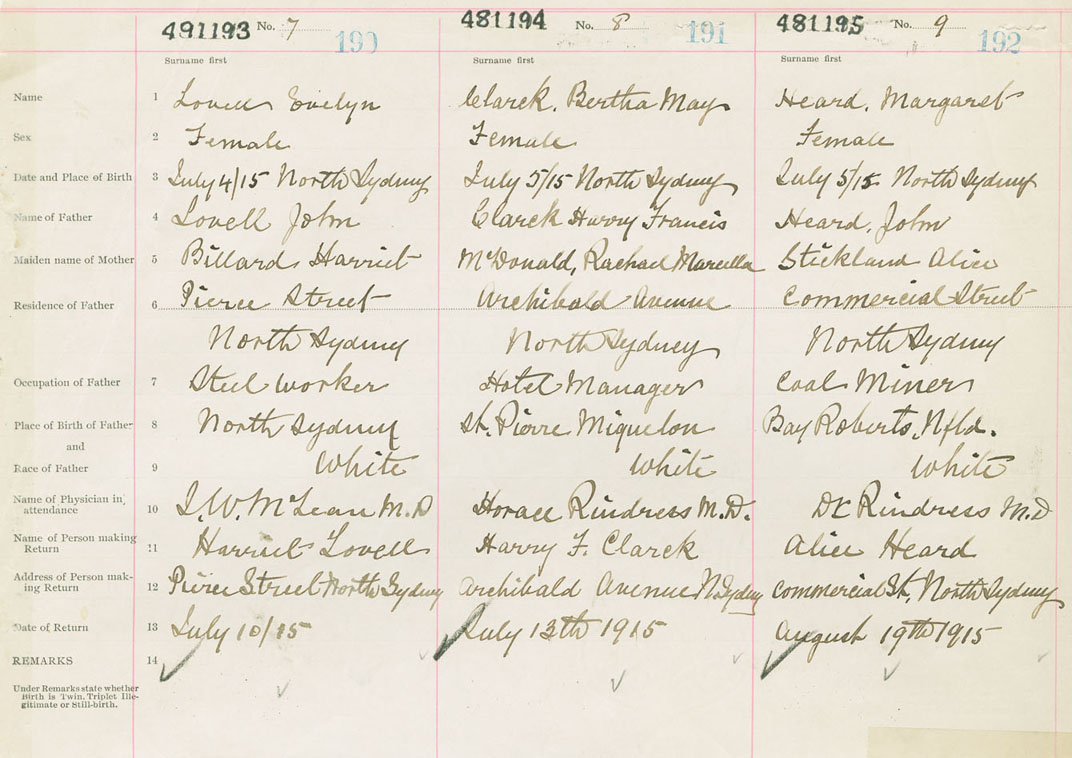 491193 No. 7 190 481194 No. 8 191 481195 No. 9 192
Surname first Surname first Surname first
Name 1 Lovell Evelyn Clarck, Bertha May Heard, Margaret
Sex 2 Female Female Female
Date and Place of Birth 3 July 4/15 North Sydney July 5/15 North Sydney July 5/15 North Sydney
Name of Father 4 Lovell John Clarck Harry Francis Heard, John
Maiden name of Mother 5 Billard Harriet McDonald, Rachael Marcella Stickland Alice
Residence of Father 6 Pierce Street Archibald Avenue Commercial Street
North Sydney North Sydney North Sydney
Occupation of Father 7 Steel Worker Hotel Manager Coal Miner
Place of Birth of Father 8 North Sydney St. Pierre Miquelon Bay Roberts, Nfld.
and
Race of Father 9 White White White
Name of Physician in attendance 10 L.W. McLean M.D Horace Rindress M.D. Dr Rindress M.D
Name of Person making Return 11 Harriet Lovell Harry F. Clarck Alice Heard
Address of Person making Return 12 Pierce Street North Sydney Archibald Avenue N. Sydney Commercial St, North Sydney
Date of Return 13 July 10/15 July 13th 1915 August 19th 1915
REMARKS 14
Under Remarks state whether
Birth is Twin, Triplet Ille-
gitimate or Still-birth.